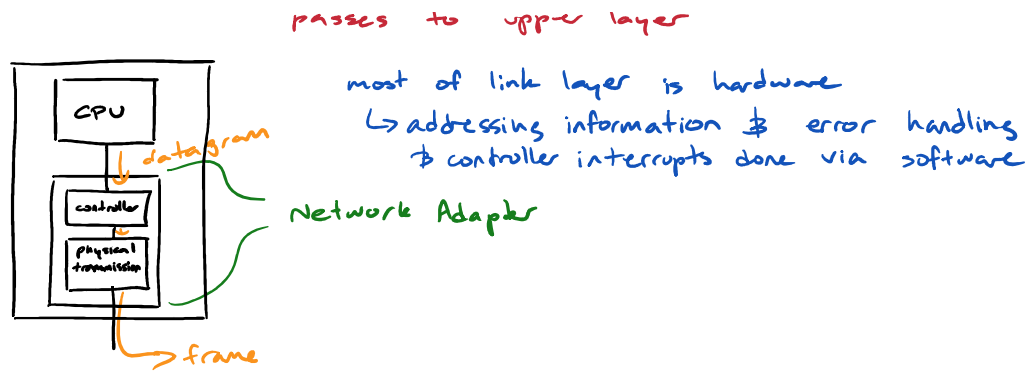 passes to upper layer
most of link layer is hardware
↳ addressing information & error handling
& controller interrupts done via software
CPU
datagram
controller
physical
transmission
Network Adapter
frame